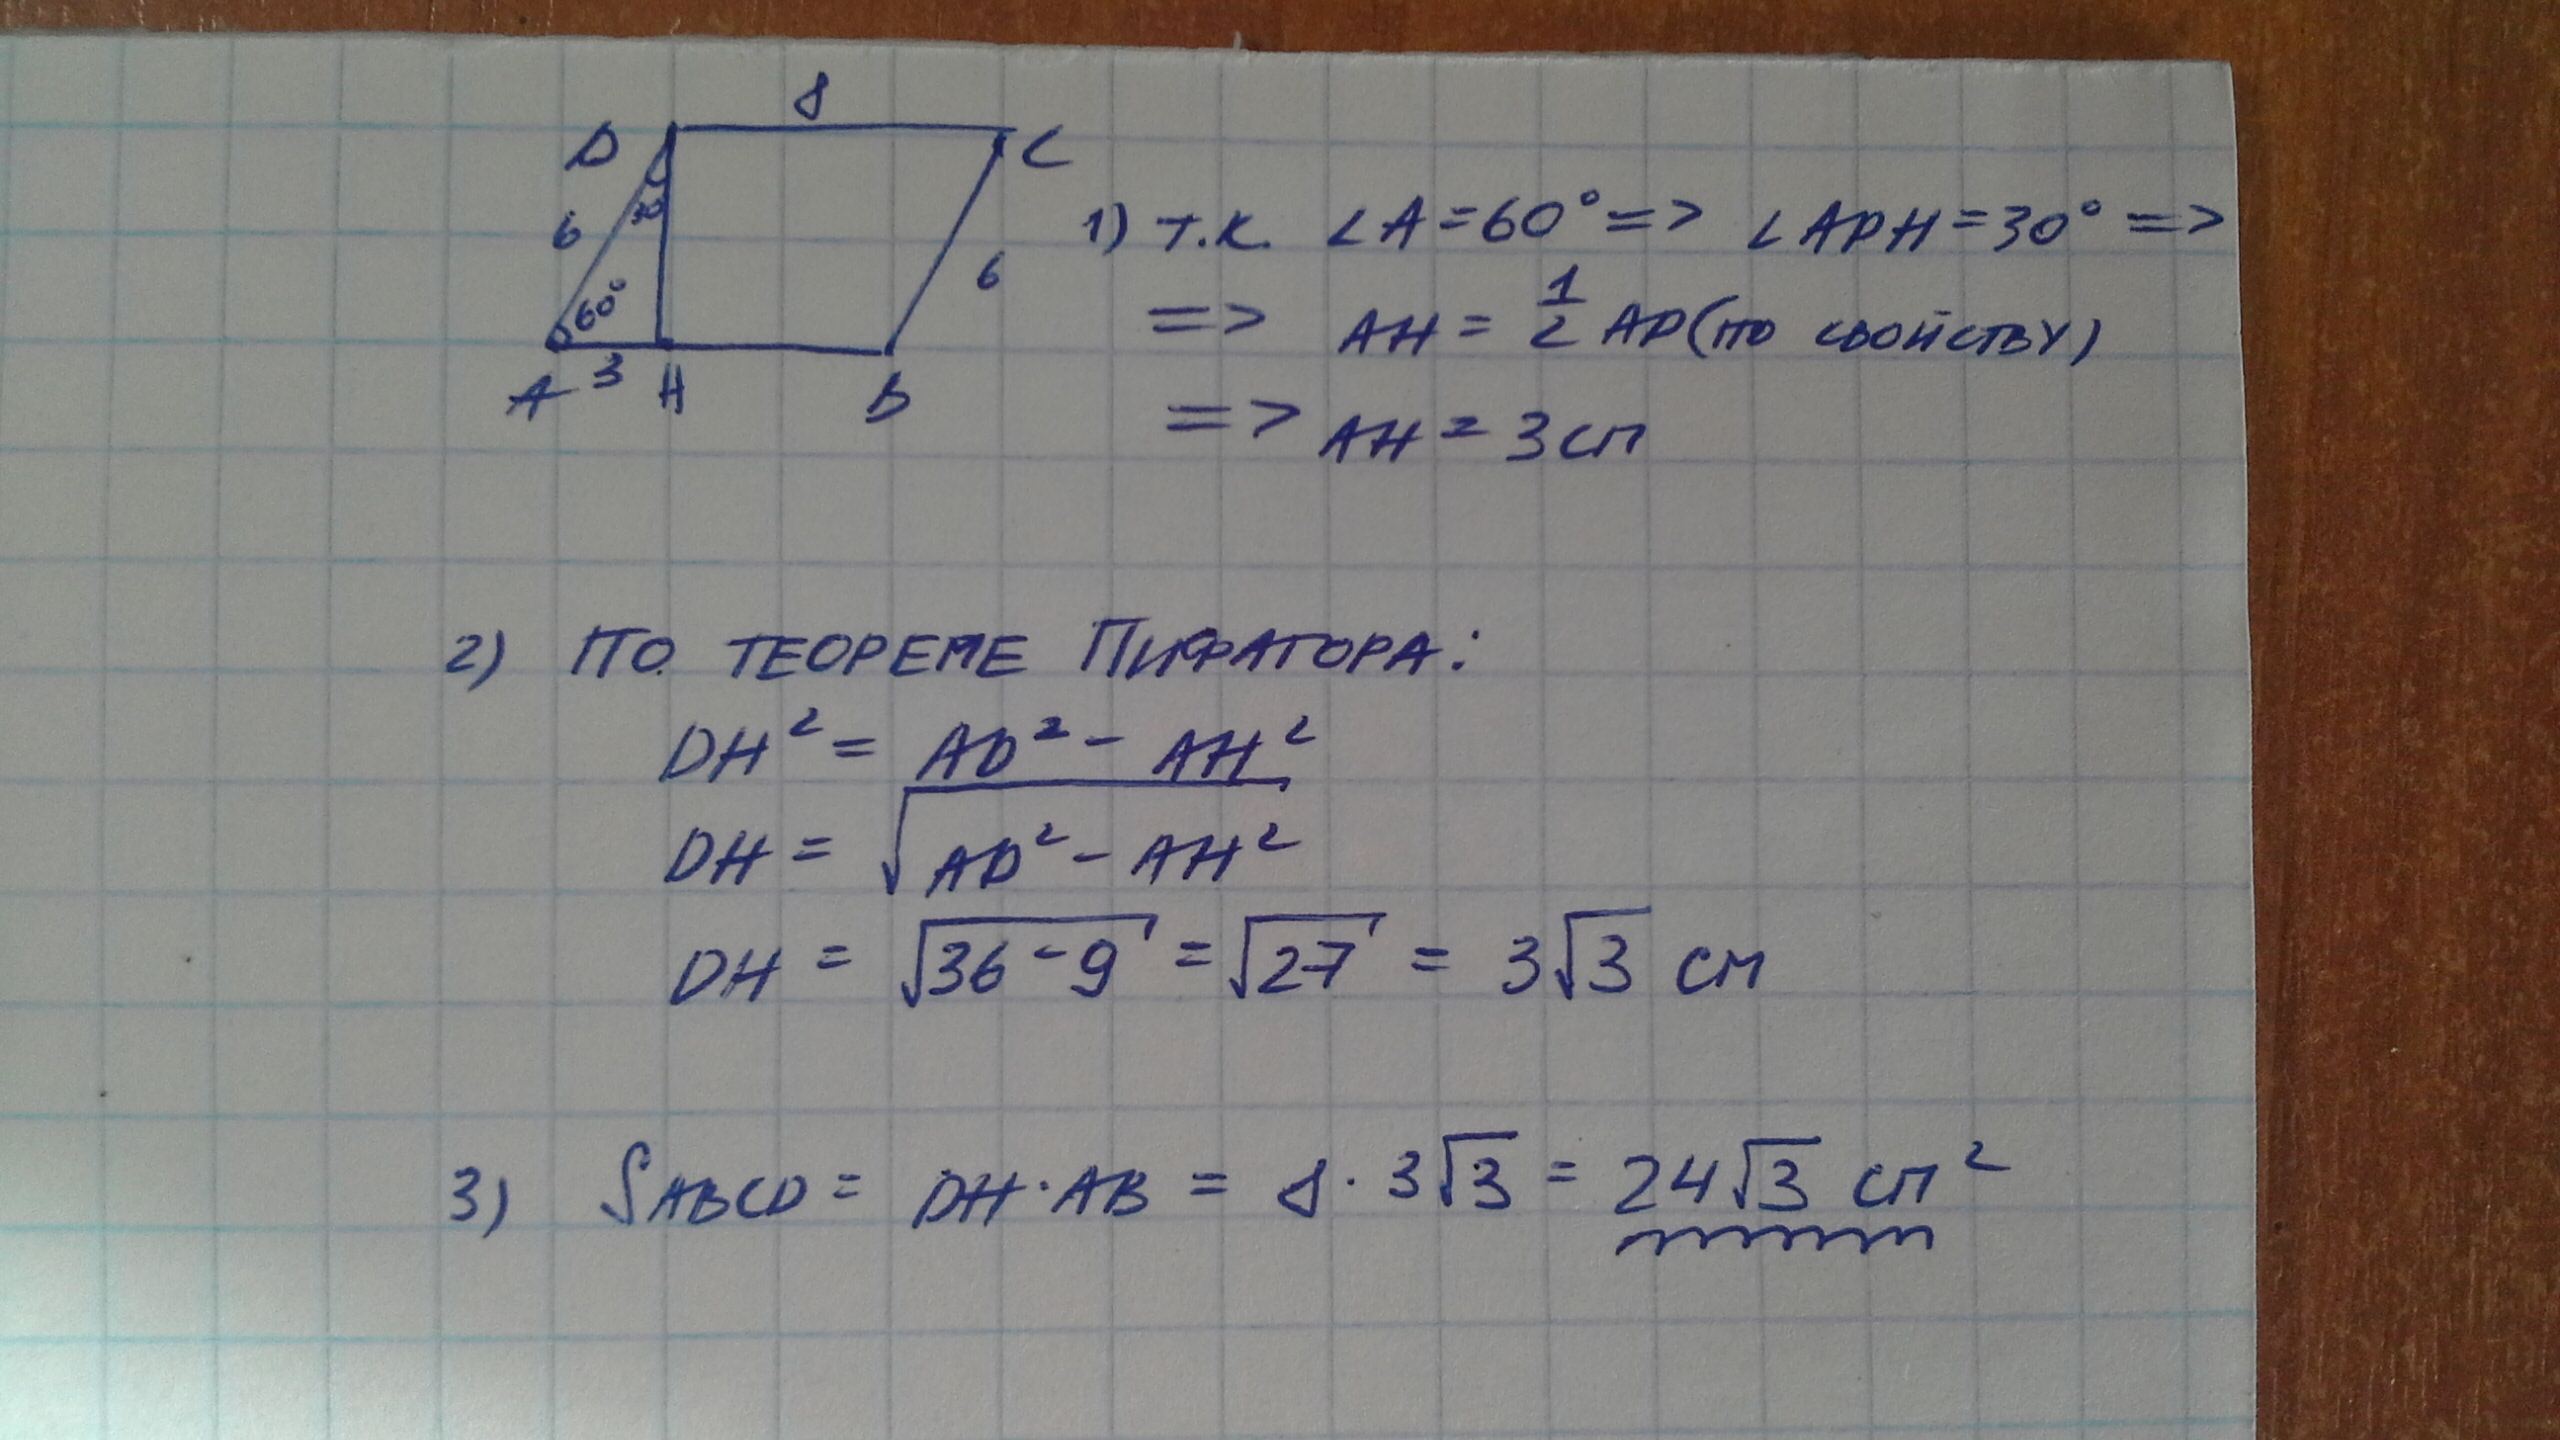 8
D
C
6
30
1) т.к. ∠A=60° => ∠ADH=30° =>
60°
6
=> AH = 1/2 AD (по свойству)
A 3 H B
=> AH = 3 см
2) ПО ТЕОРЕМЕ ПИФАГОРА:
DH² = AD² - AH²
DH = √(AD² - AH²)
DH = √(36-9) = √27 = 3√3 см
3) SABCD = DH·AB = 8·3√3 = 24√3 см²